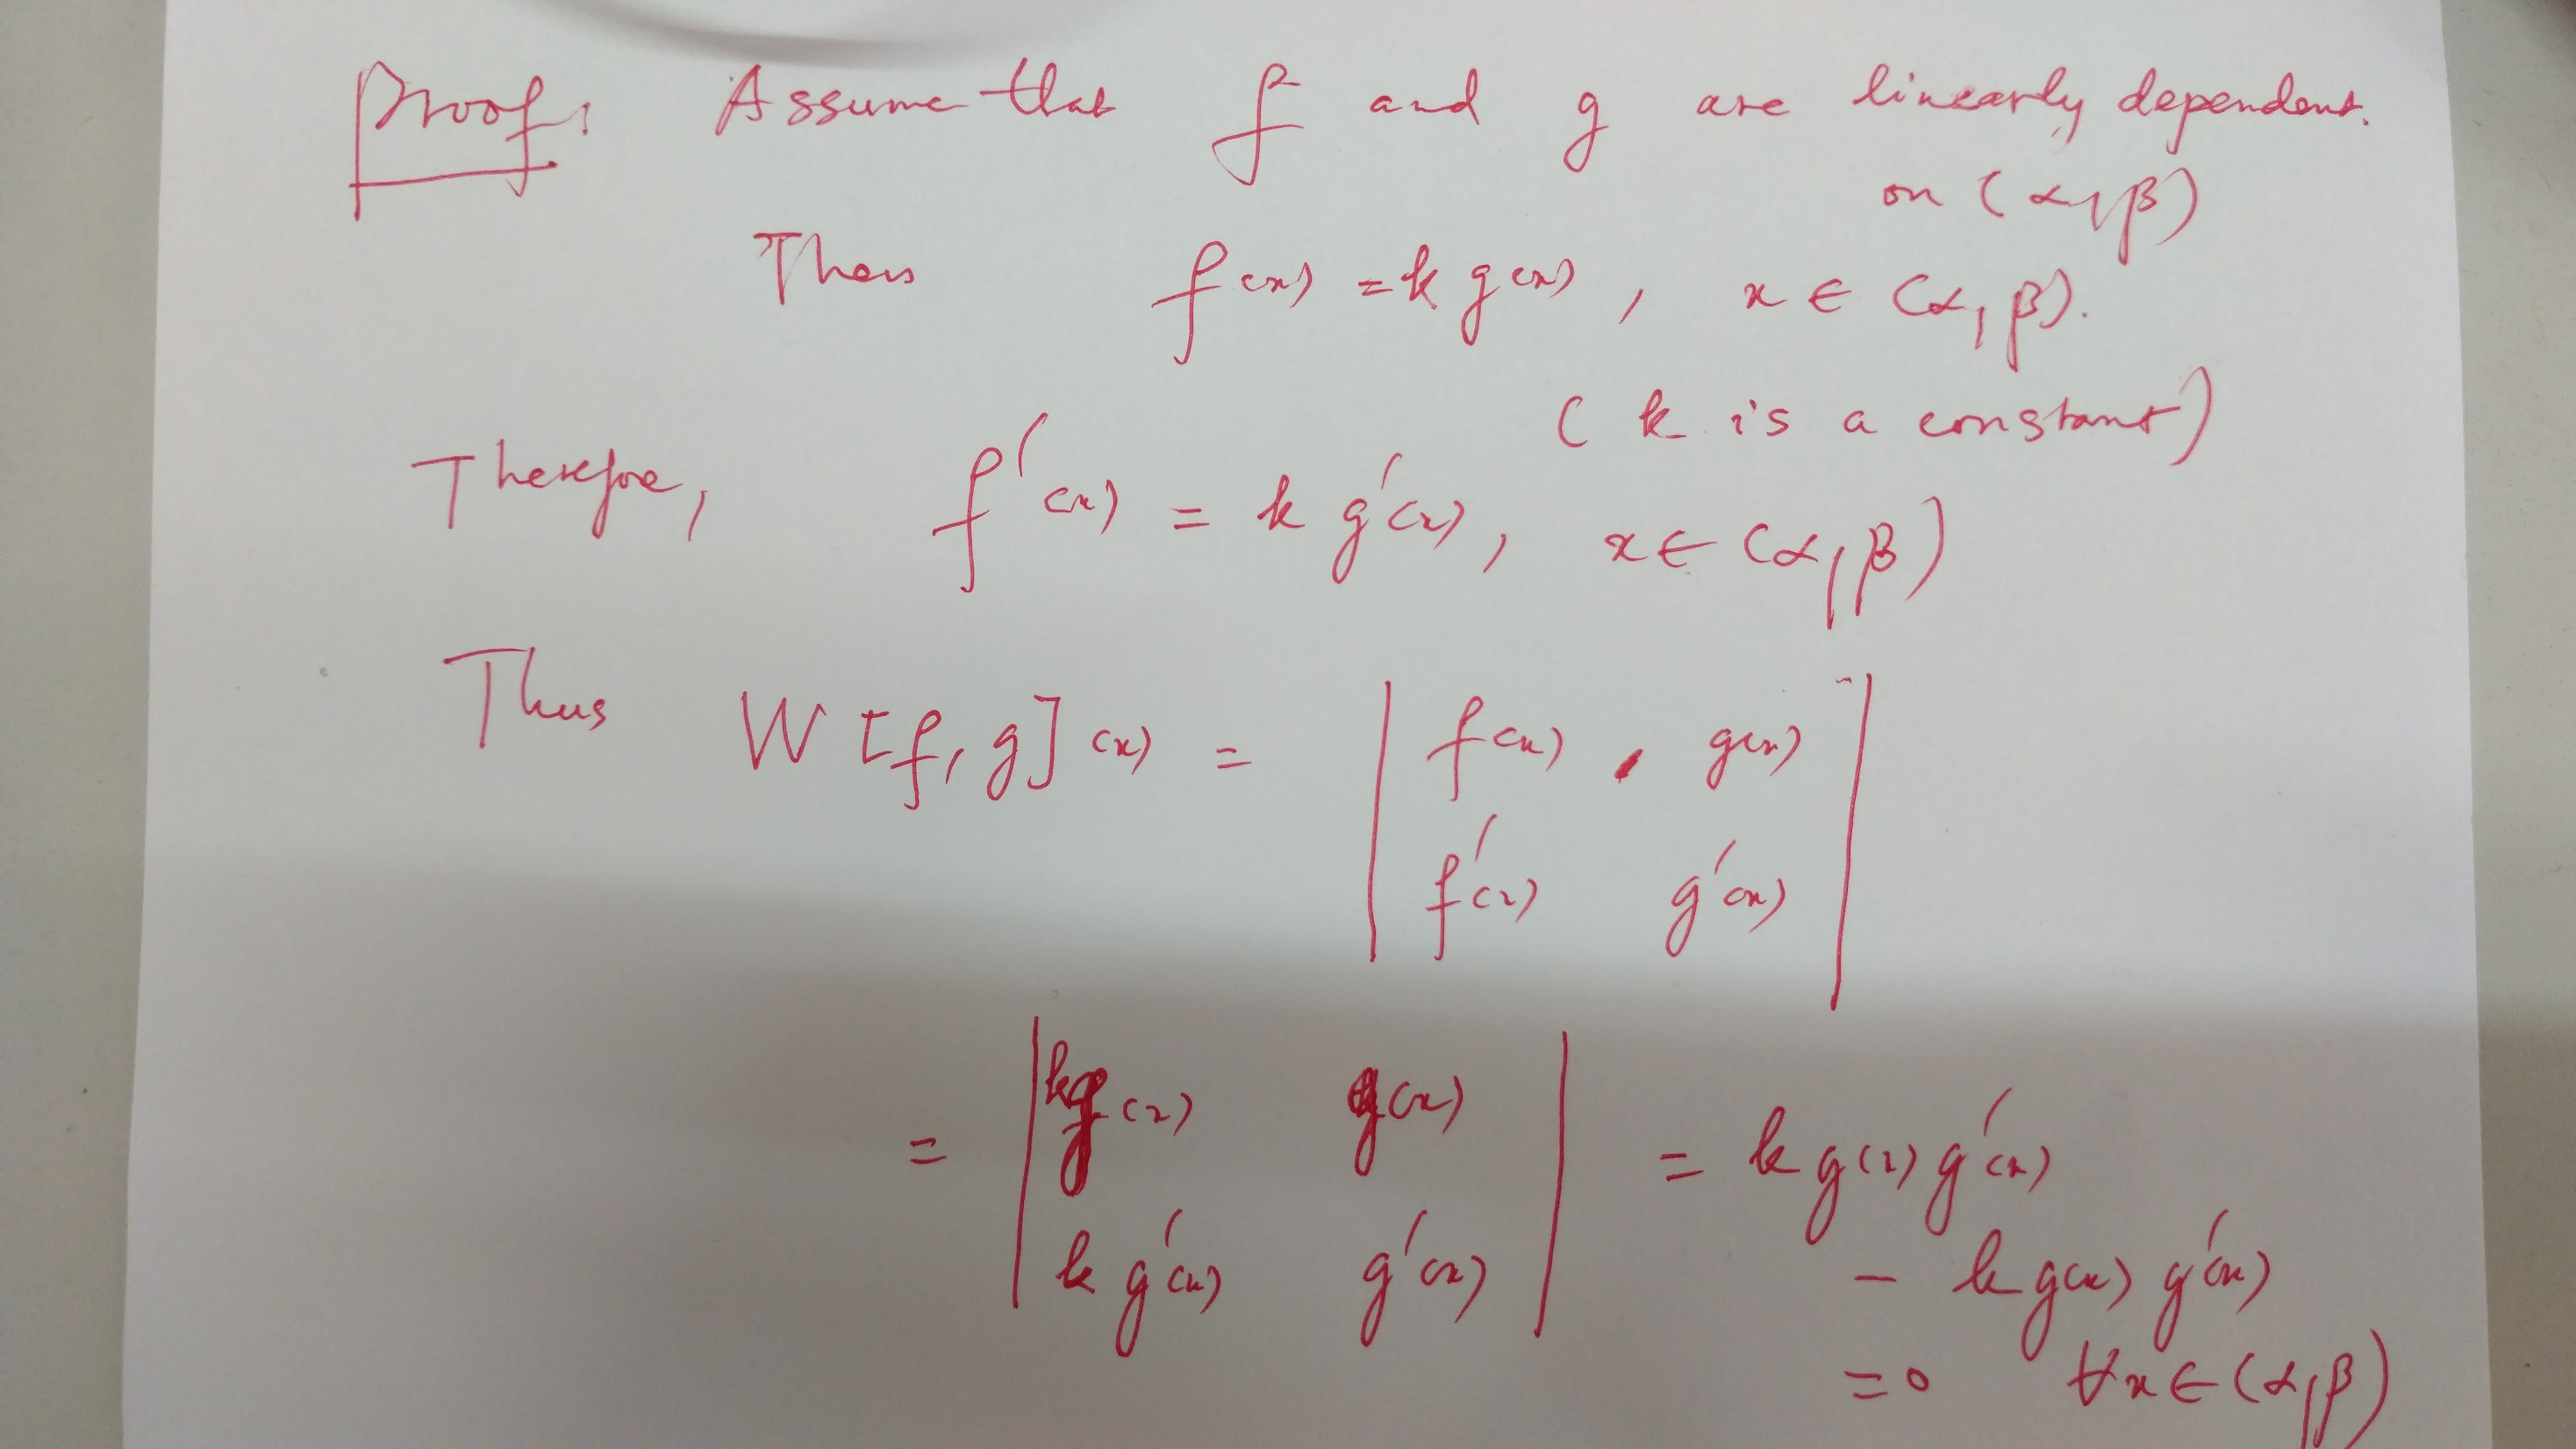 Proof: Assume that f and g are linearly dependent.
on (α, β)
Then f(x) = k g(x), x ∈ (α, β).
(k is a constant)
Therefore, f'(x) = k g'(x), x ∈ (α, β)
Thus W[f, g](x) = | f(x) g(x) |
| f'(x) g'(x) |
= | kg(x) g(x) | = k g(x) g'(x)
| k g'(x) g'(x) | - k g(x) g'(x)
= 0 ∀x ∈ (α, β)